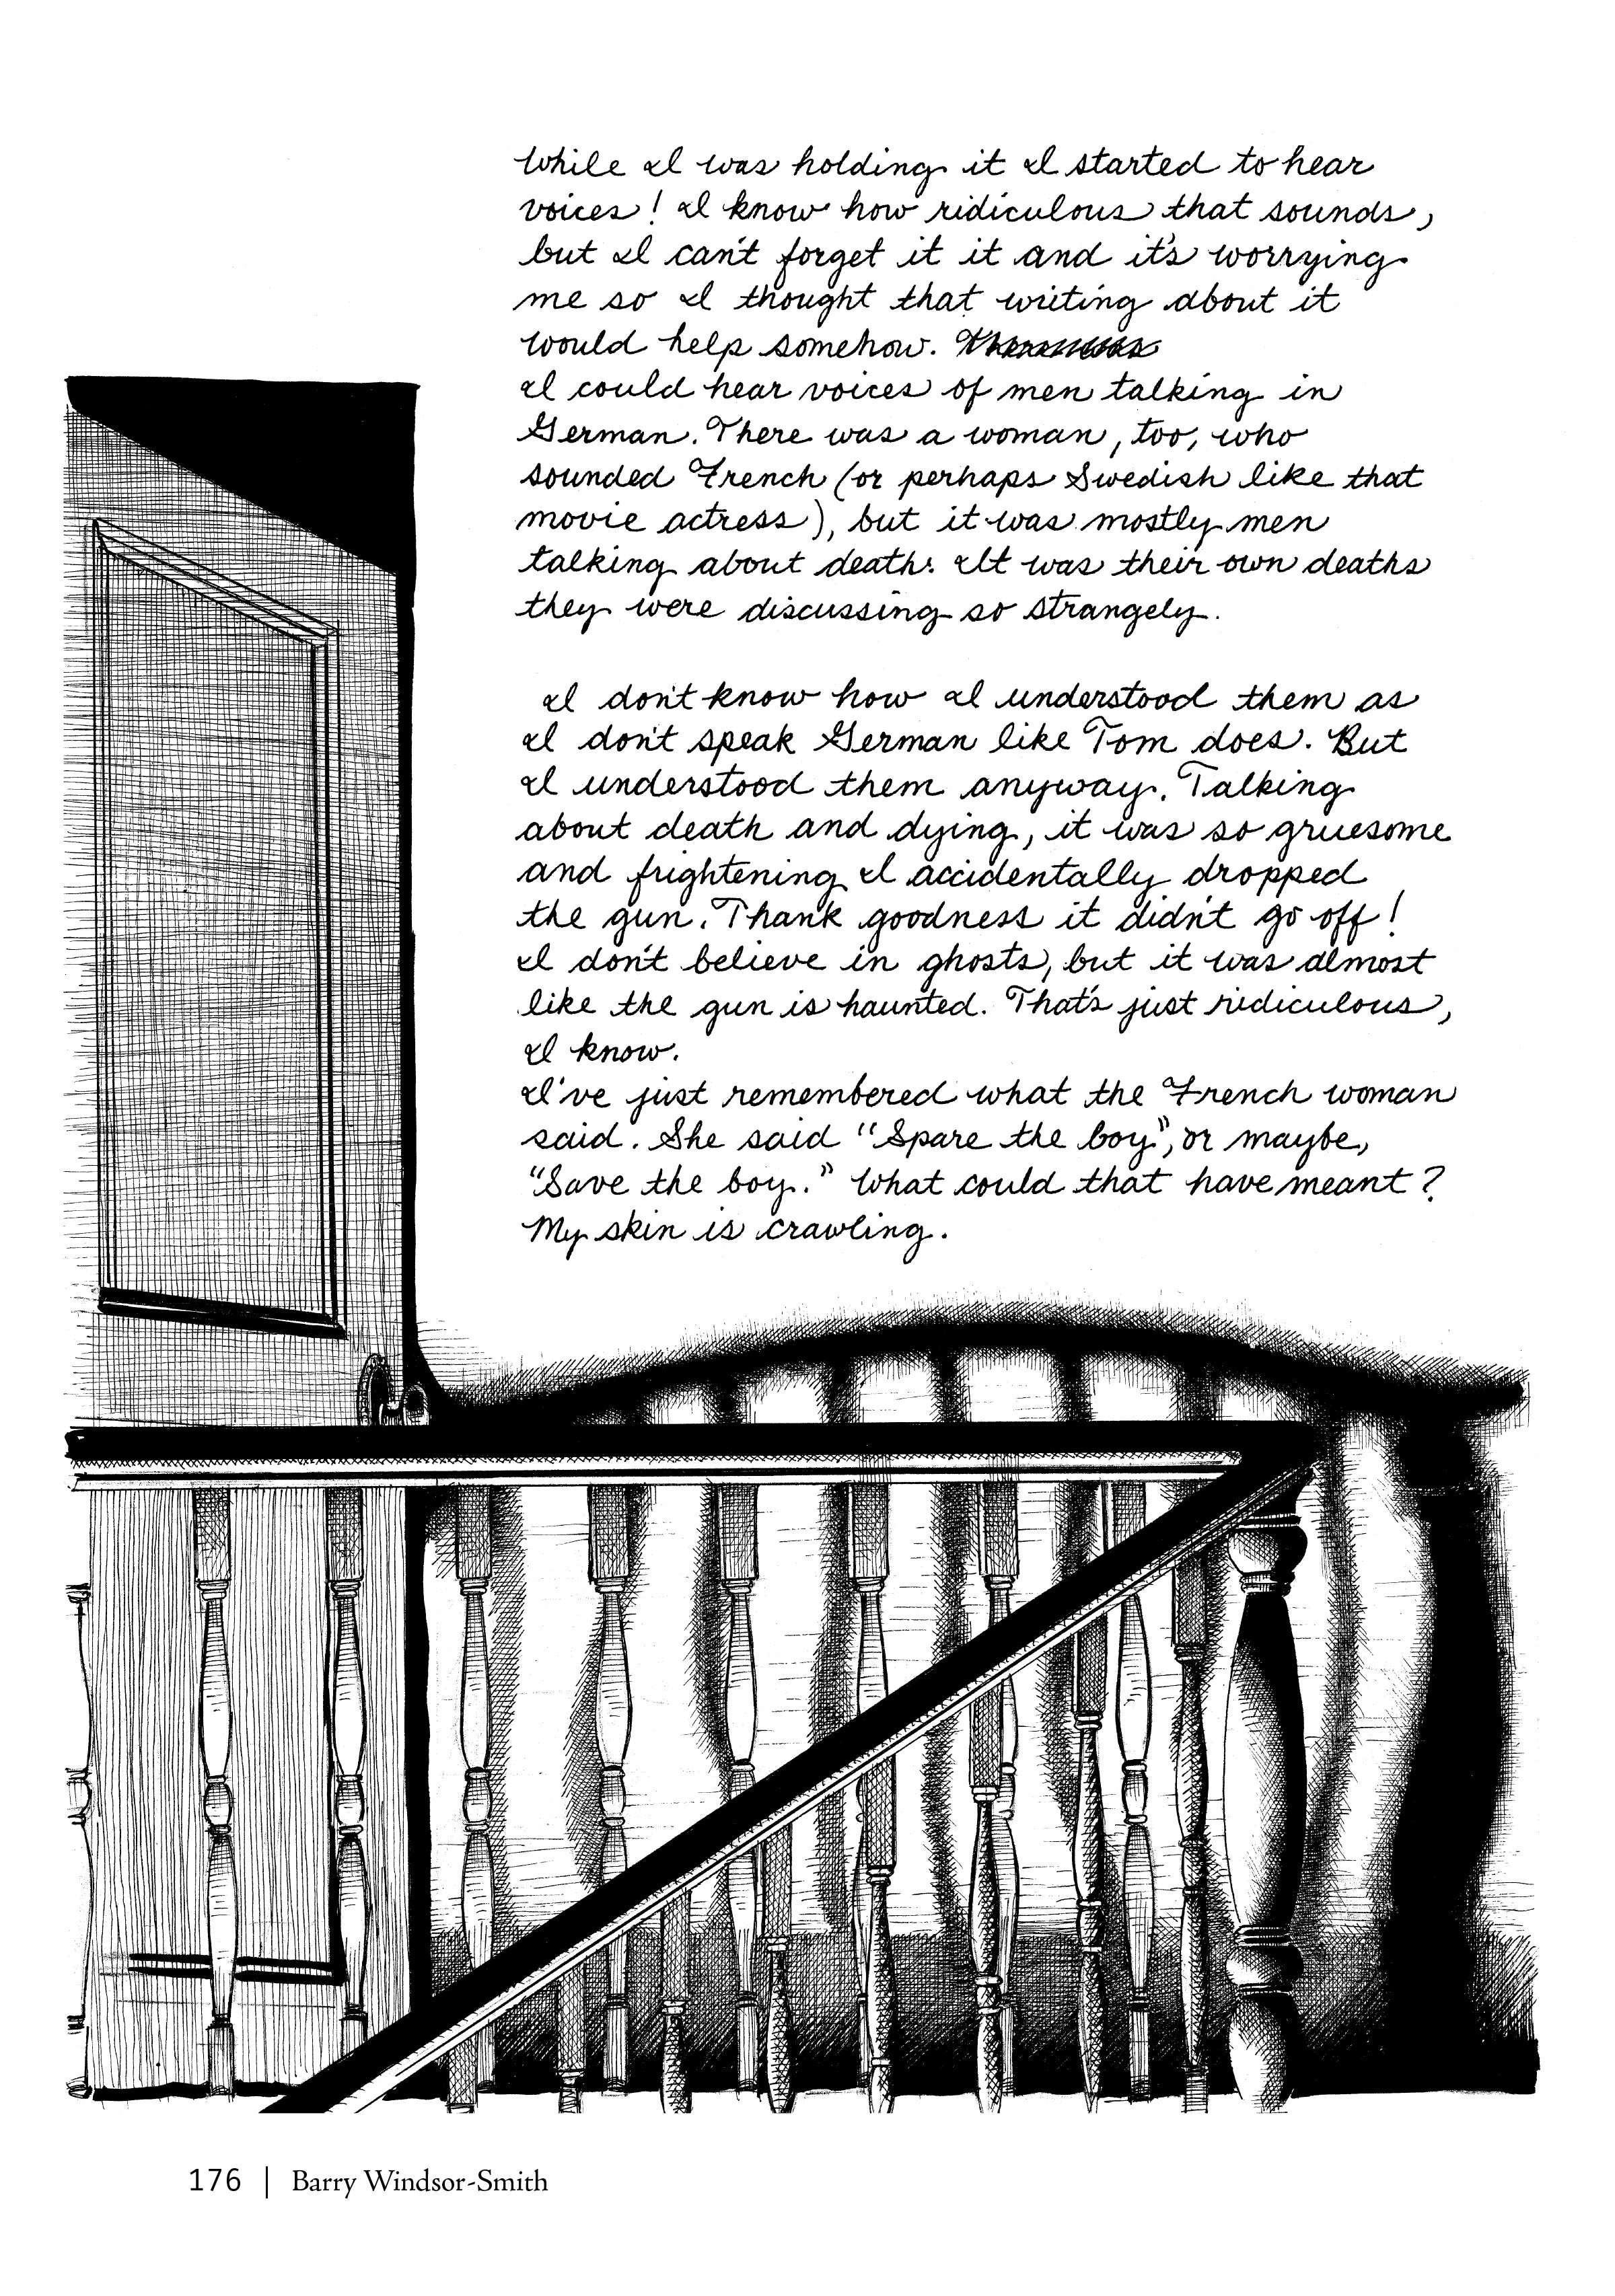 While I was holding it I started to hear
voices! I know how ridiculous that sounds,
but I can't forget it it and it's worrying
me so I thought that writing about it
would help somehow.
I could hear voices of men talking in
German. There was a woman, too, who
sounded French (or perhaps Swedish like that
movie actress), but it was mostly men
talking about death. It was their own deaths
they were discussing so strangely.
I don't know how I understood them as
I don't speak German like Tom does. But
I understood them anyway. Talking
about death and dying, it was so gruesome
and frightening I accidentally dropped
the gun. Thank goodness it didn't go off!
I don't believe in ghosts, but it was almost
like the gun is haunted. That's just ridiculous,
I know.
I've just remembered what the French woman
said. She said "Spare the boy", or maybe,
"Save the boy." What could that have meant?
My skin is crawling.
176 | Barry Windsor-Smith